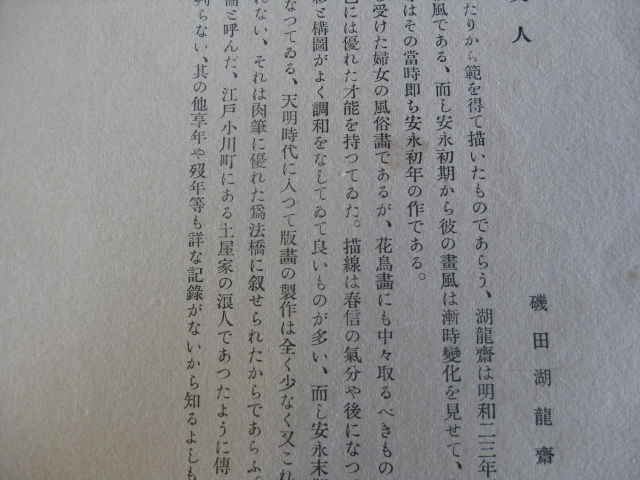 人
磯田湖龍齋
たりから範を得て描いたものであらう、湖龍齋は明和二三年
風である、而し安永初期から彼の畫風は漸時變化を見せて、
はその當時即ち安永初年の作である。
受けた婦女の風俗畫であるが、花鳥畫にも中々取るべきもの
には優れた才能を持つてゐた。描線は春信の氣分や後になつ
と構圖がよく調和をなしてゐて良いものが多い、而し安永末
なつてゐる、天明時代に入つて版畫の製作は全く少なく又これ
れない、それは肉筆に優れた爲法橋に叙せられたからであらふ。
と呼んだ、江戸小川町にある土屋家の浪人であつたように傳
判らない、其の他享年や歿年等も詳な記錄がないから知るよしも